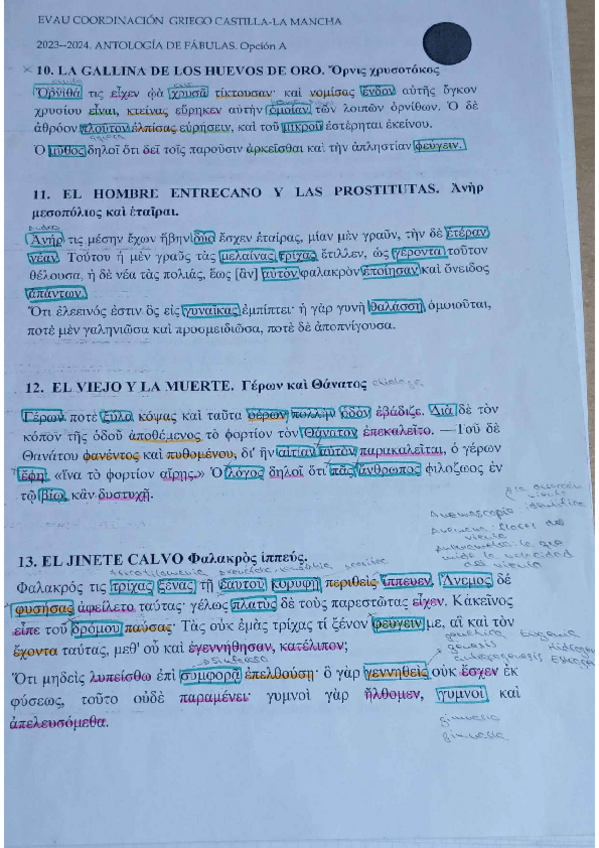 EVAU COORDINACIÓN GRIEGO CASTILLA-LA MANCHA
2023--2024. ANTOLOGÍA DE FÁBULAS. Opción A
10. LA GALLINA DE LOS HUEVOS DE ORO. Ὄρνις χρυσοτόκος
Ὄρνιθά τις εἶχεν ᾠὰ χρυσᾶ τίκτουσαν· καὶ νομίσας ἔνδον αὐτῆς ὄγκον
χρυσίου εἶναι, κτείνας εὕρηκεν αὐτὴν ὁμοίαν τῶν λοιπῶν ὀρνίθων. Ὁ δὲ
ἀθρόον πλοῦτον ἐλπίσας εὑρήσειν, καὶ τοῦ μικροῦ ἐστέρηται ἐκείνου.
Ὁ μῦθος δηλοῖ ὅτι δεῖ τοῖς παροῦσιν ἀρκεῖσθαι καὶ τὴν ἀπληστίαν φεύγειν.
11. EL HOMBRE ENTRECANO Y LAS PROSTITUTAS. Ἀνὴρ
μεσοπόλιος καὶ ἑταῖραι.
Ἀνήρ τις μέσην ἔχων ἥβην δύο ἔσχεν ἑταίρας, μίαν μὲν γραῦν, τὴν δὲ ἑτέραν
νέαν. Τούτου ἡ μὲν γραῦς τὰς μελαίνας τρίχας ἔτιλλεν, ὡς γέροντα τοῦτον
θέλουσα, ἡ δὲ νέα τὰς πολιάς, ἕως [ἂν] αὐτὸν φαλακρὸν ἐποίησαν καὶ ὄνειδος
ἁπάντων.
Ὅτι ἐλεεινός ἐστιν ὃς εἰς γυναῖκας ἐμπίπτει· ἡ γὰρ γυνὴ θαλάσσῃ ὁμοιοῦται,
ποτὲ μὲν γαληνιῶσα καὶ προσμειδιῶσα, ποτὲ δὲ ἀποπνίγουσα.
12. EL VIEJO Y LA MUERTE. Γέρων καὶ Θάνατος
Γέρων ποτὲ ξύλα κόψας καὶ ταῦτα φέρων πολλὴν ὁδὸν ἐβάδιζε. Διὰ δὲ τὸν
κόπον τῆς ὁδοῦ ἀποθέμενος τὸ φορτίον τὸν Θάνατον ἐπεκαλεῖτο. —Τοῦ δὲ
Θανάτου φανέντος καὶ πυθομένου, δι' ἣν αἰτίαν αὐτὸν παρακαλεῖται, ὁ γέρων
ἔφη· «ἵνα τὸ φορτίον αἴρῃς.» Ὁ λόγος δηλοῖ ὅτι πᾶς ἄνθρωπος φιλόζωος ἐν
τῷ βίῳ, κἂν δυστυχῇ.
13. EL JINETE CALVO Φαλακρὸς ἱππεύς.
Φαλακρός τις τρίχας ξένας τῇ ἑαυτοῦ κορυφῇ περιθεὶς ἵππευεν. Ἄνεμος δὲ
φυσήσας ἀφείλετο ταύτας· γέλως πλατὺς δὲ τοὺς παρεστῶτας εἶχεν. Κἀκεῖνος
εἶπε τοῦ δρόμου παύσας· Τὰς οὐκ ἐμὰς τρίχας τί ξένον φεύγειν με, αἳ καὶ τὸν
ἔχοντα ταύτας, μεθ' οὗ καὶ ἐγεννήθησαν, κατέλιπον;
Ὅτι μηδεὶς λυπείσθω ἐπὶ συμφορᾷ ἐπελθούσῃ· ὃ γὰρ γεννηθεὶς οὐκ ἔσχεν ἐκ
φύσεως, τοῦτο οὐδὲ παραμένει· γυμνοὶ γὰρ ἤλθομεν, γυμνοὶ καὶ
ἀπελευσόμεθα.
gimnasio
gimnasia